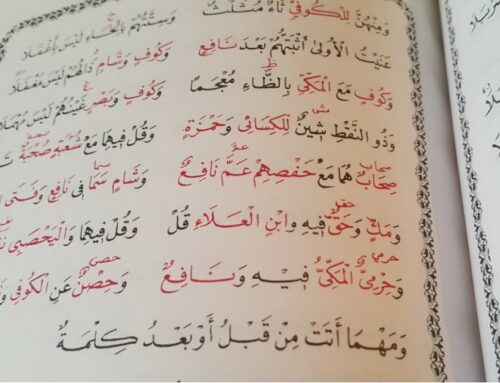 وَمِنْهُنَّ لِلْكُوفِيِّ ثَاءٌ مُثَلَّثٌ وَسِتَّتُهُمْ بِالْخَاءِ لَيْسَ بِأَغْفَلَا
عَنَيْتُ الْأُولَى أَثْبَتُّهُمْ بَعْدَ نَافِعٍ وَكُوفٍ وَشَامٍ ذَالُهُمْ لَيْسَ مُغْفَلَا
وَكُوفٍ مَعَ الْمَكِّيِّ بِالظَّاءِ مُعْجَمًا وَكُوفٍ وَبَصْرٍ غَيْنُهُمْ لَيْسَ مُهْمَلَا
وَذُو النَّقْطِ شِينٌ لِلْكِسَائِي وَحَمْزَةٍ وَقُلْ فِيهِمَا مَعْ شُعْبَةٍ صُحْبَةٌ
صِحَابٌ هُمَا مَعْ حَفْصِهِمْ عَمَّ نَافِعٌ وَشَامٍ سَمَا فِي نَافِعٍ وَفَتَى
وَمَكٍّ وَحَقٌّ فِيهِ وَابْنِ الْعَلَاءِ قُلْ وَقُلْ فِيهِمَا وَالْيَحْصَبِي
وَحِرْمِيٌّ الْمَكِّيُّ فِيهِ وَنَافِعٌ وَحِصْنٌ عَنِ الْكُوفِي
وَمَهْمَا أَتَتْ مِنْ قَبْلُ أَوْ بَعْدُ كِلْمَةٌ